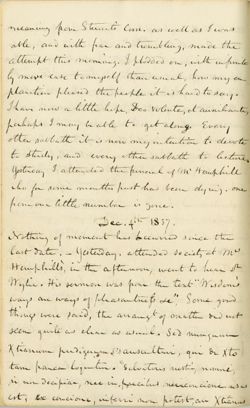 meaning from Stewarts Com. as well as I was
able, and with fear and trembling, made the
attempt this morning. I plodded on, with infinite-
ly more ease to myself than usual, how my ex-
planation pleased the people it is hard to say.
I have now a little hope, Deo Volente, et auxiliante,
perhaps I may be able to get along. Every
other sabbath it is now my intention to devote
to study, and every other sabbath to lecture.
Yesterday I attended the funeral of Mr Hemphill
who for some months past has been dying. one
from our little number is gone.
Dec. 4th 1837.
Nothing of moment has occurred since the
last date. Yesterday, attended society at Mr
Hemphill's, in the afternoon, went to hear Dr
Wylie. His sermon was from the text "Wisdom's
ways are ways of pleasantness". Some good
things were said, the arrangt. of matter did not
seem quite as clear as usual. Sed nunquam
Xtianum
tam parum loquentem
est, ex concione, inferri non potest, an Xtianus